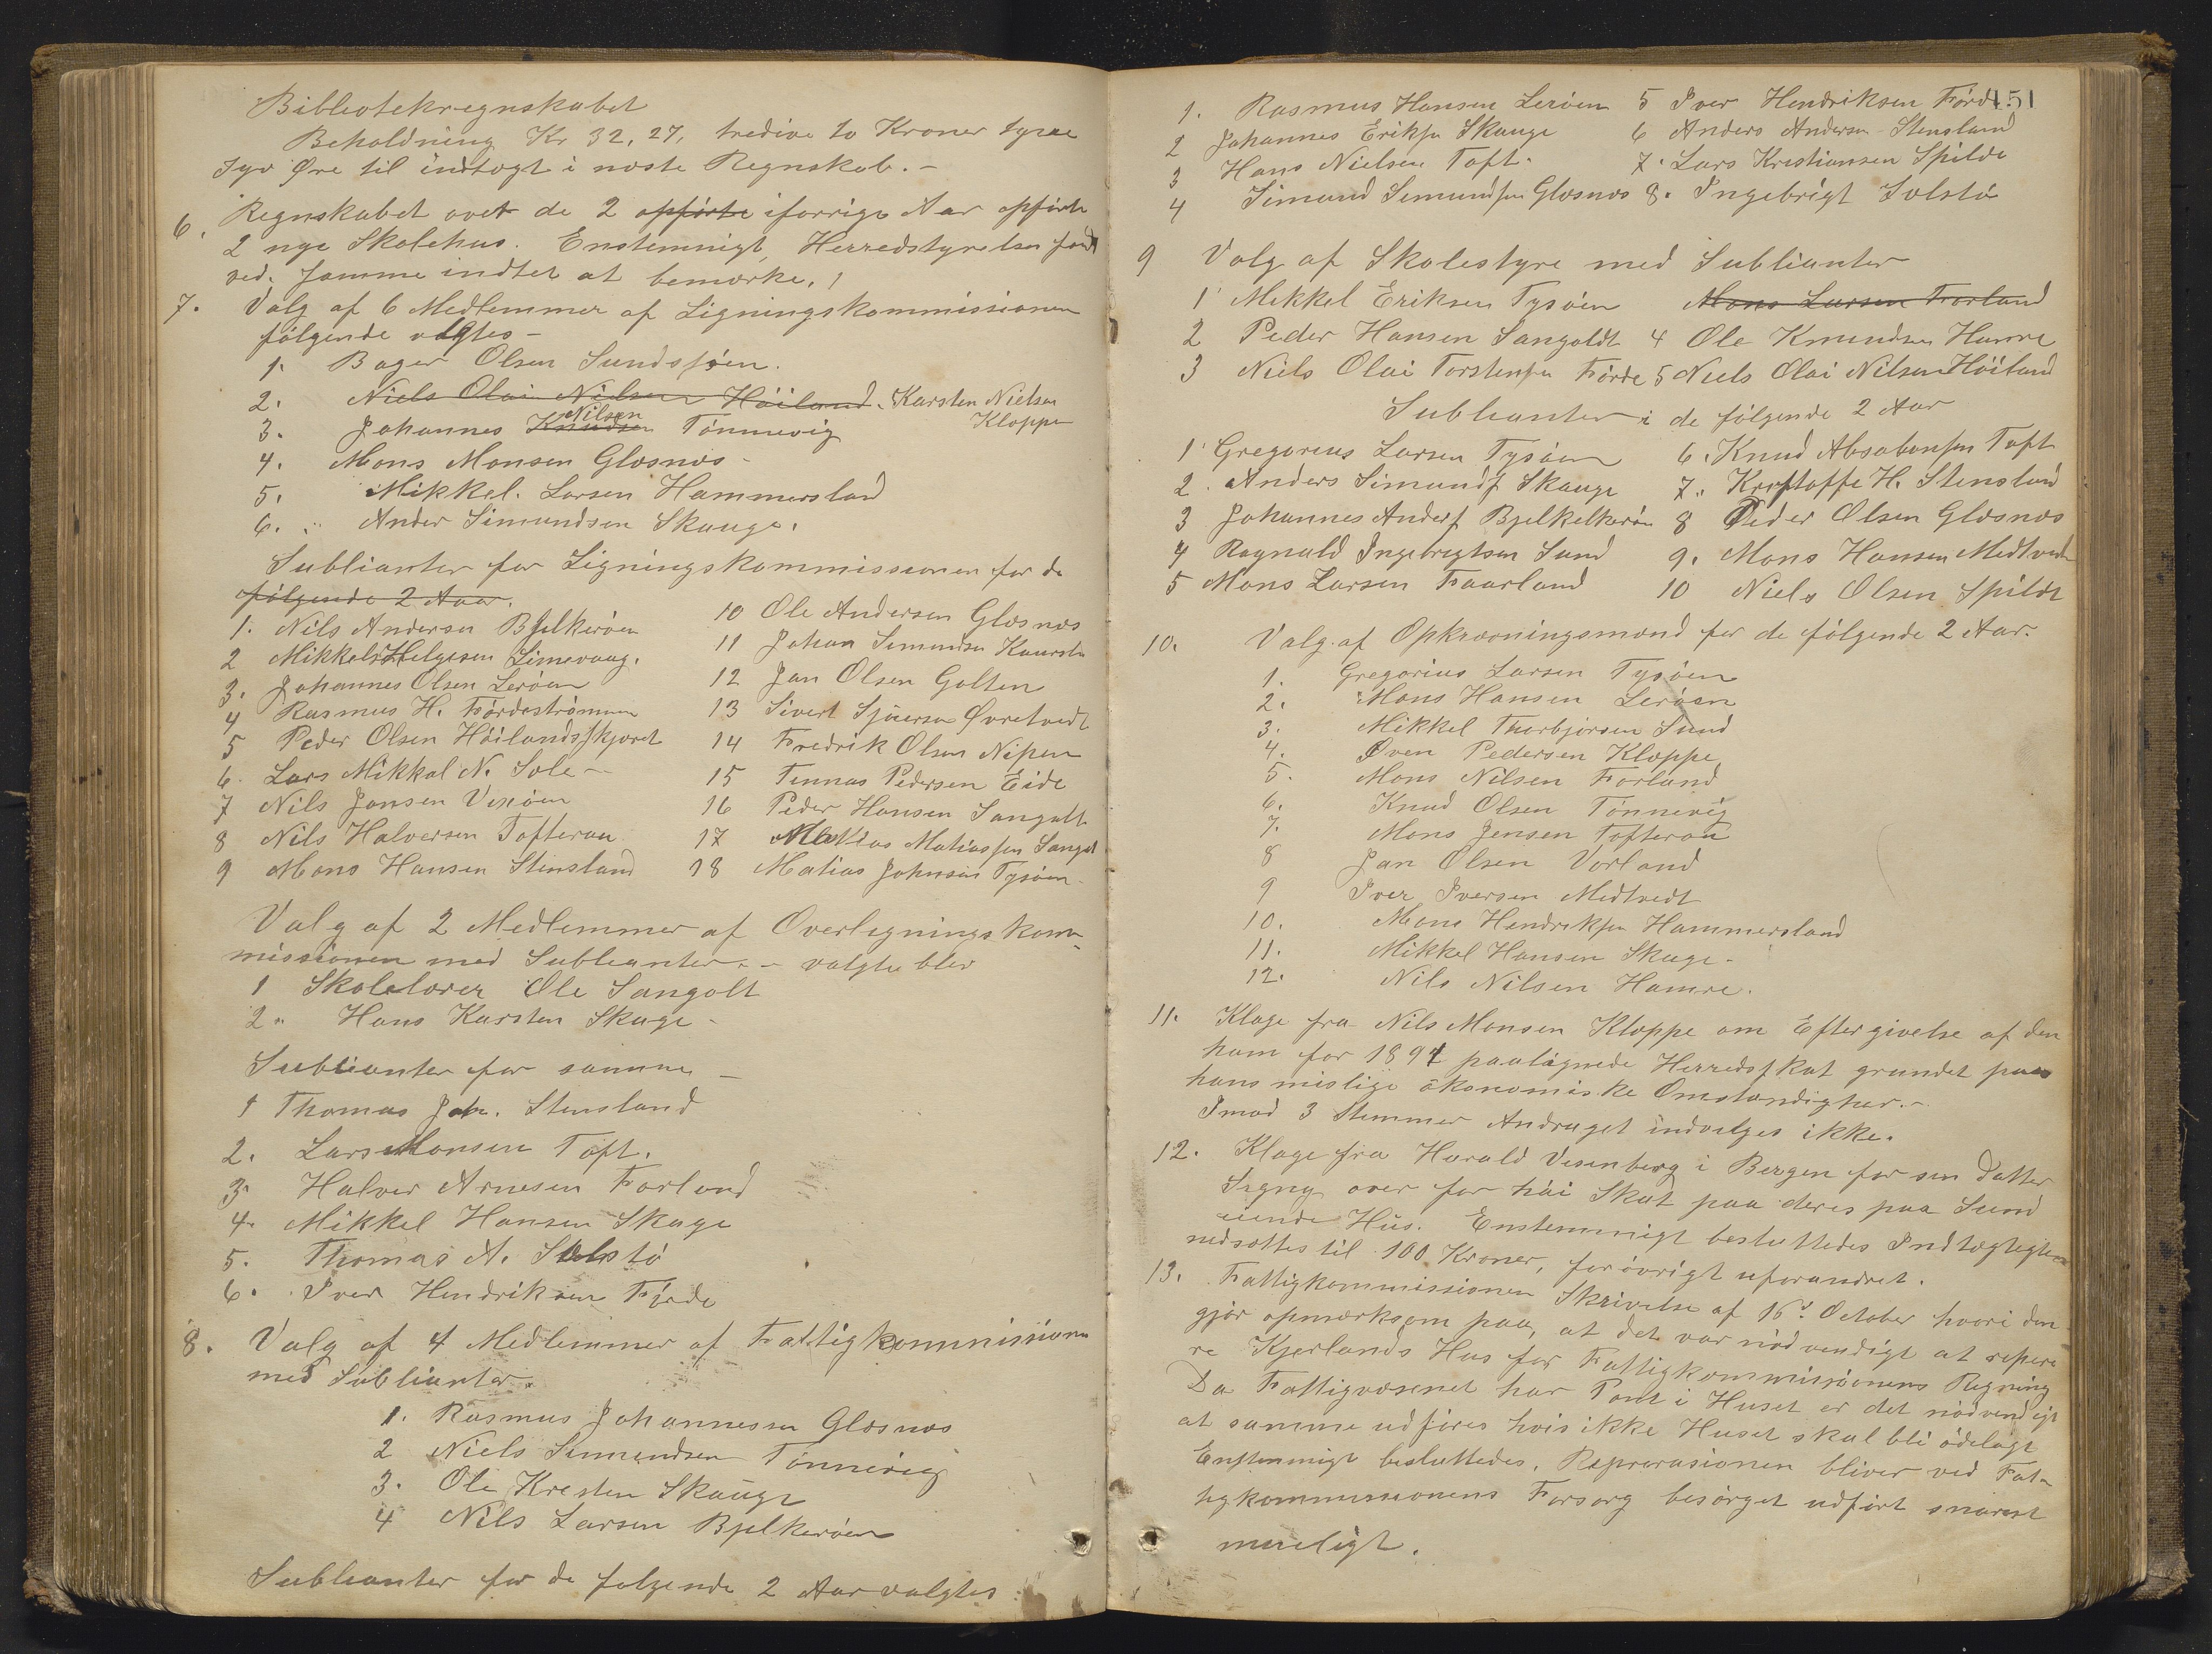 Bibliotekregnskabet
Beholdning Kr 32,27, tredive to Kroner tyve
syv Øre til indtægt i næste Regnskab. -
6. Regnskabet over de 2 opførte iforrige Aar opførte
2 nye Skolehus. Enstemmigt, Herredstyrelsen fandt
ved. samme indtet at bemærke.
7. Valg af 6 Medlemmer af Ligningskommissionen
følgende valgtes -
1. Bager Olsen Sundssjøen.
2. Niels Olai Nielsen Höiland. Karsten Nielsen
Kloppe
3. Johannes Knudsen Nilsen Tönnevig
4. Mons Monsen Glæsnæs -
5. Mikkel. Larsen Hammersland
6. Ander Simundsen Skauge.
Sublianter for Ligningskommissionen for de
følgende 2 Aar.
1. Nils Andersen Bjelkeröen
2 Mikkel Helgesen Limevaag.
3. Johannes Olsen Leröen
4 Rasmus H. Fördeströmmen
5 Peder Olsen Höilandsskjæret
6. Lars Mikkal N. Sole -
7 Nils Jansen Vixöen
8 Nils Halversen Tofteraa
9 Mons Hansen Stensland
10 Ole Andersen Glæsnæs
11 Johan Simundsen Kausla
12 Jan Olsen Golten
13 Sivert Sjursen Øvretvedt
14 Fredrik Olsen Nipen
15 Tennas Pedersen Eide
16 Peder Hansen Sangolt
17 Matias Matiassen Sangol
18 Matias Johnsen Tysöen
Valg af 2 Medlemmer af Overligningskom-
missionen med Sublianter. - valgte blev
1 Skolelærer Ole Sangolt
2. Hans Karsten Skage -
Sublianter for samme -
1 Thomas Joh. Stensland
2. Lars Monsen Toft.
3. Halver Arnesen Forland
4. Mikkel Hansen Skage
5. Thomas A. Solstö
6. Iver Hendriksen Förde
8. Valg af 4 Medlemmer af Fattigkommissionen
med Sublianter.
1. Rasmus Johannessen Glæsnæs
2 Niels Simundsen Tönnevig
3. Ole Kresten Skauge
4 Nils Larsen Bjelkeröen
Sublianter for de følgende 2 Aar valgtes
151
1. Rasmus Hansen Leröen 5 Iver Hendriksen Förde
2 Johannes Eriksen Skauge 6 Anders Andersen Stensland
3 Hans Nielsen Toft. 7. Lars Kristiansen Spilde
4 Simund Simundsen Glæsnæs 8. Ingebrigt Solstö
9 Valg af Skolestyre med Sublianter
1 Mikkel Eriksen Tysöen Mons Larsen Forland
2 Peder Hansen Sangoldt 4 Ole Knudsen Hamre
3 Niels Olai Torstensen Förde 5 Niels Olai Nilsen Höiland
Sublianter i de følgende 2 Aar
1 Gregorius Larsen Tysöen 6. Knud Absalonsen Toft
2. Anders Simunds Skauge 7. Kristoffe H. Stensland
3 Johannes Anders Bjelkelkerön 8 Peder Olsen Glæsnæs
4 Ragnald Ingebregtsen Sund 9. Mons Hansen Medtvedt
5 Mons Larsen Faarland 10 Niels Olsen Spilde
10. Valg af Opkrævningsmænd for de følgende 2 Aar.
1. Gregorius Larsen Tysöen
2. Mons Hansen Leröen
3. Mikkel Thorbjørsen Sund
4. Sven Pedersen Kloppe
5. Mons Nilsen Forland
6. Knud Olsen Tönnevig
7. Mons Jensen Tofteraa
8 Jan Olsen Vorland
9 Iver Iversen Medtvedt
10. Mons Hendriksen Hammersland
11. Mikkel Hansen Skage -
12. Nils Nilsen Hamre.
11. Klage fra Nils Monsen Kloppe om Eftergivelse af den
ham for 1891 paalignede Herredsskat grundet paa
hans mislige økonomiske Omstændigher. -
Imod 3 Stemmer Andraget indvilges ikke.
12. Klage fra Harald Vesenberg i Bergen for sin Datter
Sygny over for høi Skat paa deres paa Sund
eiende Hus. Enstemmigt besluttedes Indtægtegten
nedsættes til 100 Kroner, forøvrigt uforandret.
13. Fattigkommissionen Skrivelse af 16d October hvori den
gjør opmærksom paa, at det var nødvendigt at repere
re Kjerlands Hus for Fattigkommissionens Regning
Da Fattigvæsenet har Pant i Huset er det nødvendigt
at samme udføres hvis ikke Huset skal bli ødelagt
Enstemmigt besluttedes, Reprarasionen bliver ved Fat-
tigkommissionens Forsorg besørget udført snarest
mueligt.